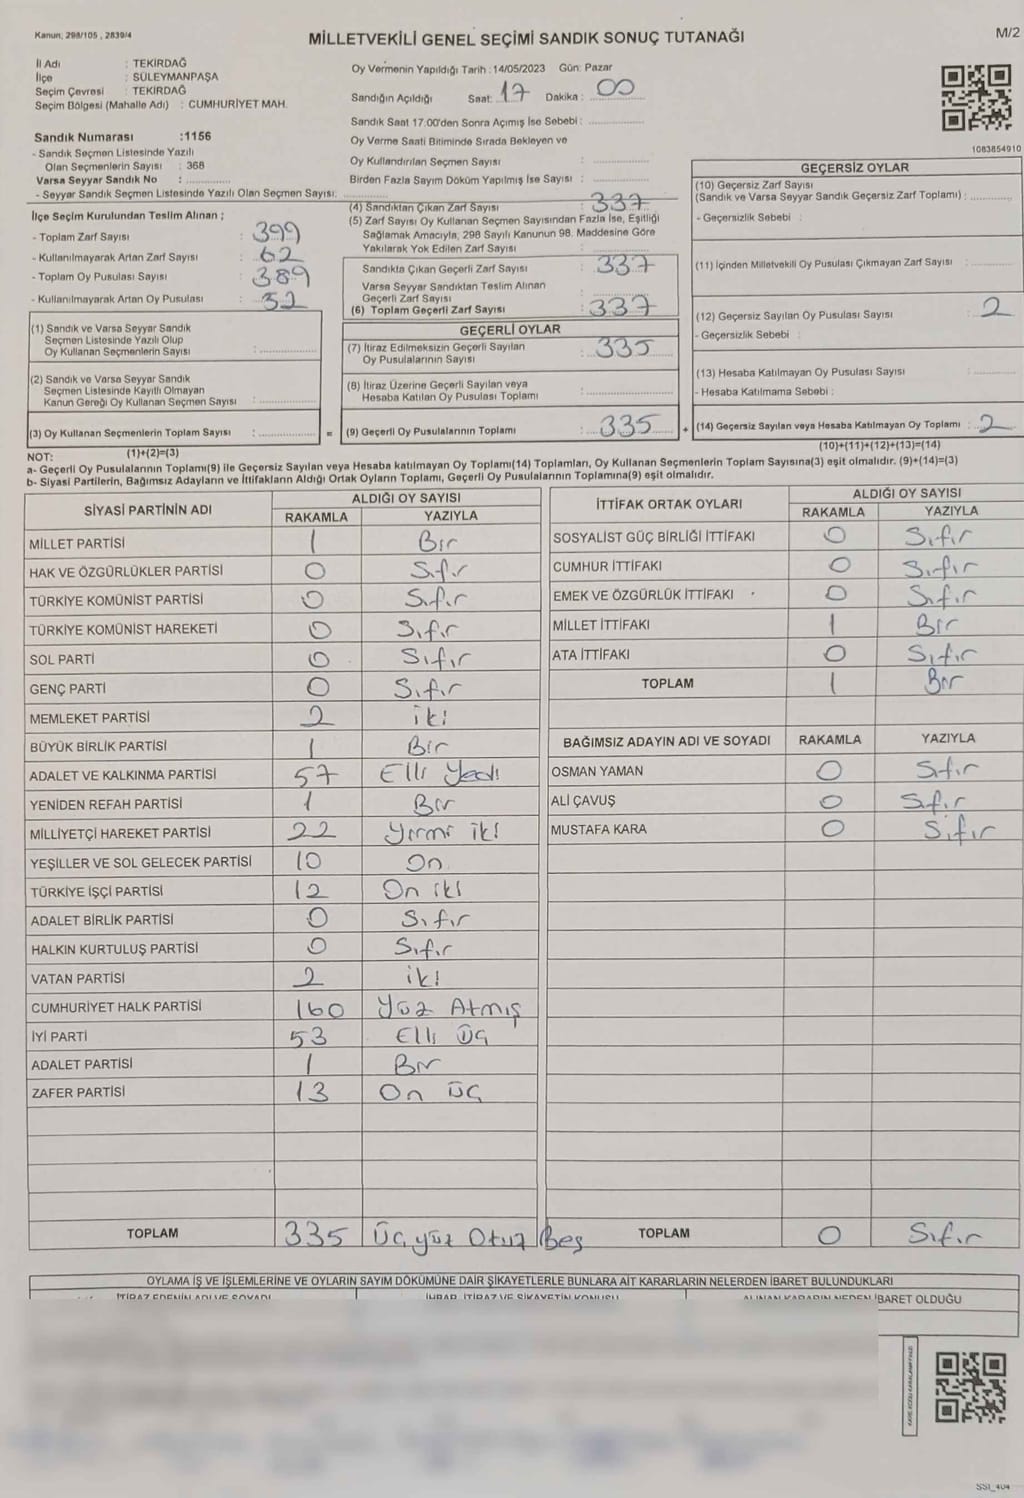 Kanun; 298/105 , 2839/4
MİLLETVEKİLİ GENEL SEÇİMİ SANDIK SONUÇ TUTANAĞI
M/2
İl Adı : TEKİRDAĞ
İlçe : SÜLEYMANPAŞA
Seçim Çevresi : TEKİRDAĞ
Seçim Bölgesi (Mahalle Adı) : CUMHURİYET MAH.
Sandık Numarası :1156
- Sandık Seçmen Listesinde Yazılı
Olan Seçmenlerin Sayısı : 368
Varsa Seyyar Sandık No :
- Seyyar Sandık Seçmen Listesinde Yazılı Olan Seçmen Sayısı:
İlçe Seçim Kurulundan Teslim Alınan ;
- Toplam Zarf Sayısı : 399
- Kullanılmayarak Artan Zarf Sayısı : 62
- Toplam Oy Pusulası Sayısı : 389
- Kullanılmayarak Artan Oy Pusulası : 52
(1) Sandık ve Varsa Seyyar Sandık
Seçmen Listesinde Yazılı Olup
Oy Kullanan Seçmenlerin Sayısı :
(2) Sandık ve Varsa Seyyar Sandık
Seçmen Listesinde Kayıtlı Olmayan
Kanun Gereği Oy Kullanan Seçmen Sayısı :
(3) Oy Kullanan Seçmenlerin Toplam Sayısı :
(1)+(2)=(3)
Oy Vermenin Yapıldığı Tarih : 14/05/2023 Gün: Pazar
Sandığın Açıldığı Saat: 17 Dakika : 00
Sandık Saat 17.00'den Sonra Açımış İse Sebebi :
Oy Verme Saati Bitiminde Sırada Bekleyen ve
Oy Kullandırılan Seçmen Sayısı :
Birden Fazla Sayım Döküm Yapılmış İse Sayısı :
(4) Sandıktan Çıkan Zarf Sayısı : 337
(5) Zarf Sayısı Oy Kullanan Seçmen Sayısından Fazla İse, Eşitliği
Sağlamak Amacıyla; 298 Sayılı Kanunun 98. Maddesine Göre
Yakılarak Yok Edilen Zarf Sayısı :
Sandıkta Çıkan Geçerli Zarf Sayısı : 337
Varsa Seyyar Sandıktan Teslim Alınan
Geçerli Zarf Sayısı :
(6) Toplam Geçerli Zarf Sayısı : 337
GEÇERLİ OYLAR
(7) İtiraz Edilmeksizin Geçerli Sayılan
Oy Pusulalarının Sayısı : 335
(8) İtiraz Üzerine Geçerli Sayılan veya
Hesaba Katılan Oy Pusulası Toplamı :
= (9) Geçerli Oy Pusulalarının Toplamı : 335 +
1083854910
GEÇERSİZ OYLAR
(10) Geçersiz Zarf Sayısı
(Sandık ve Varsa Seyyar Sandık Geçersiz Zarf Toplamı) :
- Geçersizlik Sebebi :
(11) İçinden Milletvekili Oy Pusulası Çıkmayan Zarf Sayısı :
(12) Geçersiz Sayılan Oy Pusulası Sayısı : 2
- Geçersizlik Sebebi :
(13) Hesaba Katılmayan Oy Pusulası Sayısı :
- Hesaba Katılmama Sebebi :
(14) Geçersiz Sayılan veya Hesaba Katılmayan Oy Toplamı : 2
(10)+(11)+(12)+(13)=(14)
NOT:
a- Geçerli Oy Pusulalarının Toplamı(9) ile Geçersiz Sayılan veya Hesaba katılmayan Oy Toplamı(14) Toplamları, Oy Kullanan Seçmenlerin Toplam Sayısına(3) eşit olmalıdır. (9)+(14)=(3)
b- Siyasi Partilerin, Bağımsız Adayların ve İttifakların Aldığı Ortak Oyların Toplamı, Geçerli Oy Pusulalarının Toplamına(9) eşit olmalıdır.
SİYASİ PARTİNİN ADI ALDIĞI OY SAYISI
RAKAMLA YAZIYLA
MİLLET PARTİSİ 1 Bir
HAK VE ÖZGÜRLÜKLER PARTİSİ 0 Sıfır
TÜRKİYE KOMÜNİST PARTİSİ 0 Sıfır
TÜRKİYE KOMÜNİST HAREKETİ 0 Sıfır
SOL PARTİ 0 Sıfır
GENÇ PARTİ 0 Sıfır
MEMLEKET PARTİSİ 2 iki
BÜYÜK BİRLİK PARTİSİ 1 Bir
ADALET VE KALKINMA PARTİSİ 57 Elli Yedi
YENİDEN REFAH PARTİSİ 1 Bir
MİLLİYETÇİ HAREKET PARTİSİ 22 Yirmi iki
YEŞİLLER VE SOL GELECEK PARTİSİ 10 On
TÜRKİYE İŞÇİ PARTİSİ 12 On iki
ADALET BİRLİK PARTİSİ 0 Sıfır
HALKIN KURTULUŞ PARTİSİ 0 Sıfır
VATAN PARTİSİ 2 iki
CUMHURİYET HALK PARTİSİ 160 Yüz Atmış
İYİ PARTİ 53 Elli Üç
ADALET PARTİSİ 1 Bir
ZAFER PARTİSİ 13 On Üç
TOPLAM 335 Üç yüz Otuz Beş
İTTİFAK ORTAK OYLARI ALDIĞI OY SAYISI
RAKAMLA YAZIYLA
SOSYALİST GÜÇ BİRLİĞİ İTTİFAKI 0 Sıfır
CUMHUR İTTİFAKI 0 Sıfır
EMEK VE ÖZGÜRLÜK İTTİFAKI 0 Sıfır
MİLLET İTTİFAKI 1 Bir
ATA İTTİFAKI 0 Sıfır
TOPLAM 1 Bir
BAĞIMSIZ ADAYIN ADI VE SOYADI RAKAMLA YAZIYLA
OSMAN YAMAN 0 Sıfır
ALİ ÇAVUŞ 0 Sıfır
MUSTAFA KARA 0 Sıfır
TOPLAM 0 Sıfır
OYLAMA İŞ VE İŞLEMLERİNE VE OYLARIN SAYIM DÖKÜMÜNE DAİR ŞİKAYETLERLE BUNLARA AİT KARARLARIN NELERDEN İBARET BULUNDUKLARI
İTİRAZ EDENİN ADI VE SOYADI İHBAR, İTİRAZ VE ŞİKAYETİN KONUSU ALINAN KARARIN NEDEN İBARET OLDUĞU
SSI_404